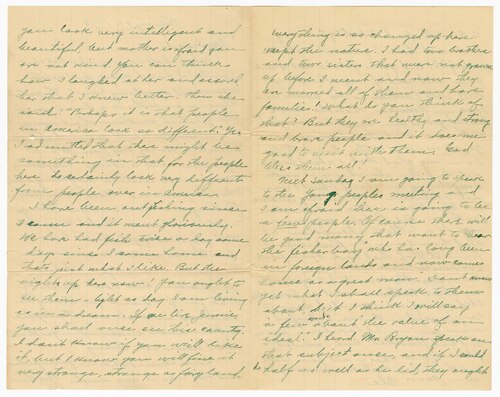 you look very intelligent and
beautiful but mother is afraid you
are not kind. You can think
how I laughed at her and assured
her that I knew better. Then she
said: "Perhaps it is that people
in America look so different." Yes
I admitted that there might be
something in that for the people
here do certainly look very different
from people over in America.
I have been out fishing since
I came and it went
We have had fish twice a day some
days since I came home and
thats just what I like. But the
nights up here now! You ought to
see them. light as day I am living
as in a dream. If we live, Jennie,
you shall once see his country.
I don't know if you will like
it, but I know you will find it
very strange, strange as fairy land.
Everything is so changed up here
except the nature. I had two brothers
and two sisters that were not grown
up before I went and now they
are married all of them and have
families! What do you think of
that? But they are healthy and strong
and brave people and it does me
good to visit with them. God
bless them all!
Next Sunday I am going to speak
to the young peoples meeting and
I am afraid there is going to be
a few people. Of course there will
be good many that want to hear
the fisher boy who has long been
in foreign lands and now comes
home as a great man. I don't know
yet what I shall speak to them
about, but I think I will say
a few words about the value of an
ideal. I heard Mr. Bryan speak on
that subject once, and if I could
half as well as he did, they ought